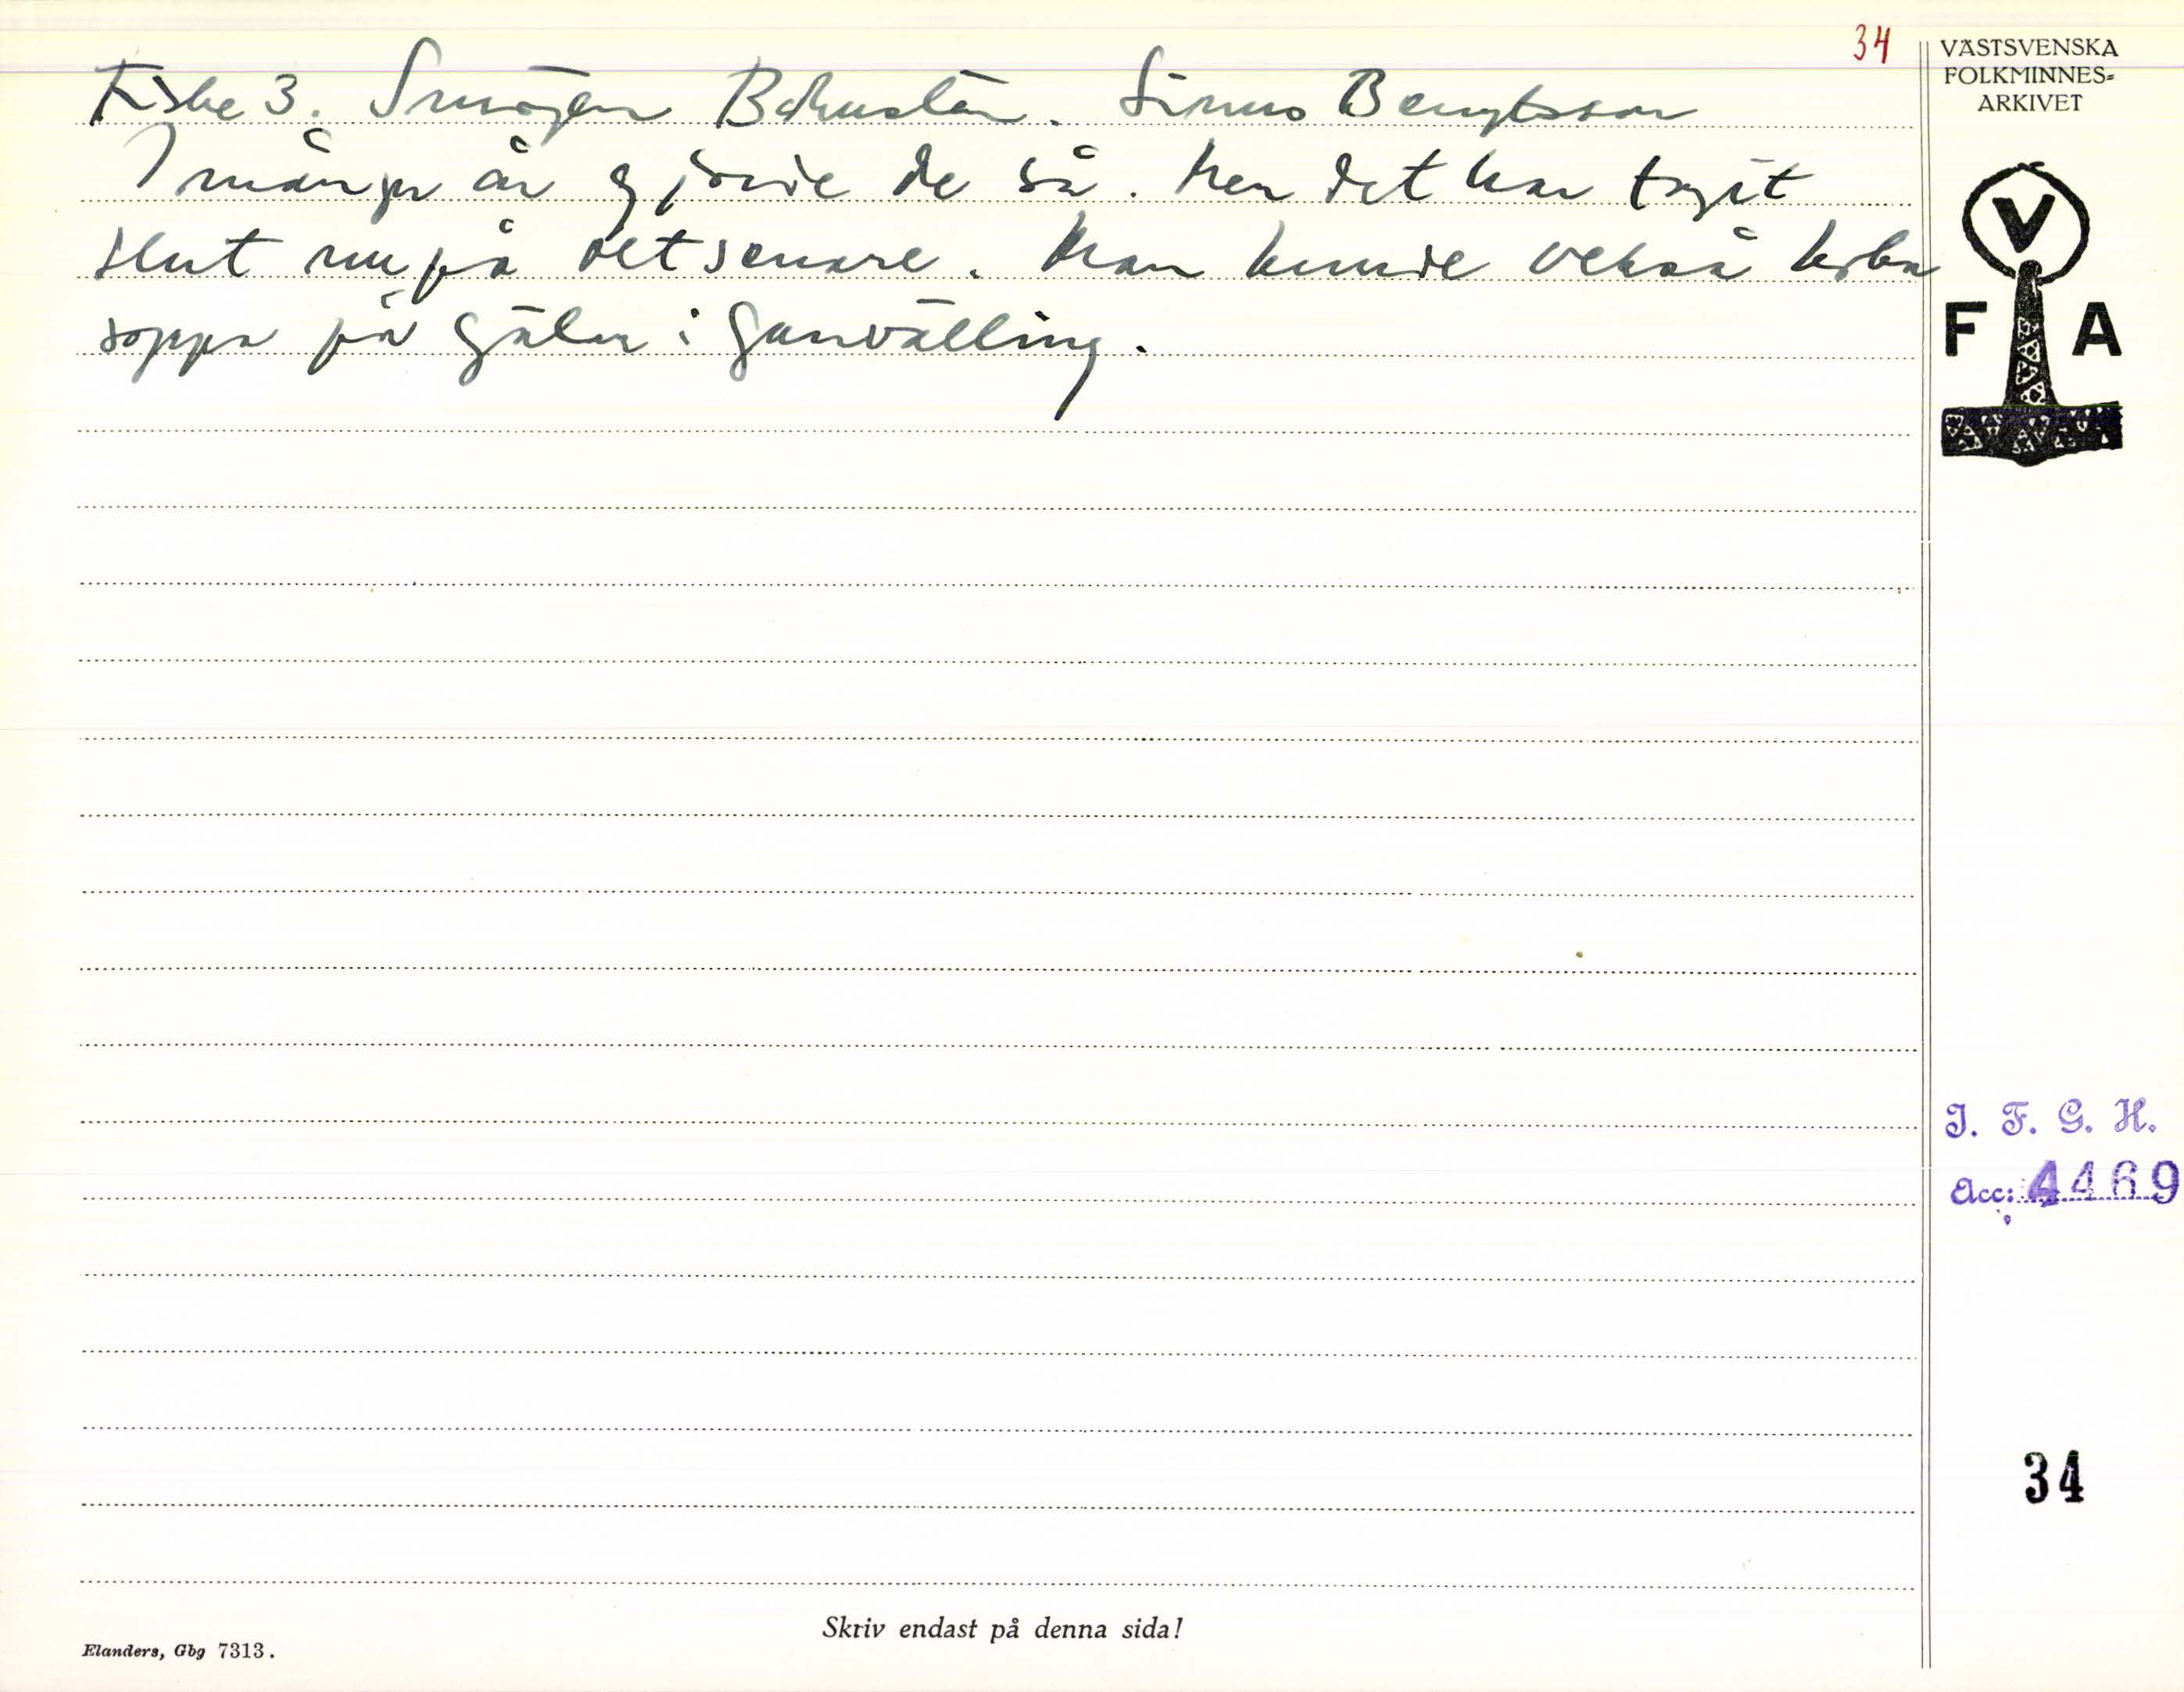 34
VÄSTSVENSKA
FOLKMINNES-
ARKIVET
Fiske 3. Smögen Bohuslän. Linus Bengtsson
I många år gjorde de så. Men det har tagit
slut nu på det senare. Man kunde också koka
soppa på gälar i
V
F A
I. F. G. H.
Acc: 4469
34
Skriv endast på denna sida!
Elanders, Gbg 7313.